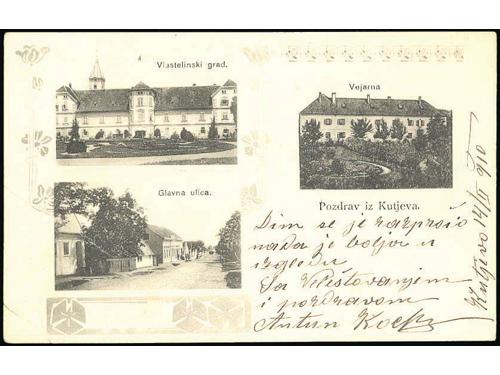 Vlastelinski grad.
Vojarna
Glavna ulica.
Pozdrav iz Kutjeva.
Dim se je razpršio
nada je boljoj u
izgledu
Sa Veleštovanjem
i pozdravom
Antun
Kutjevo 14/II 910